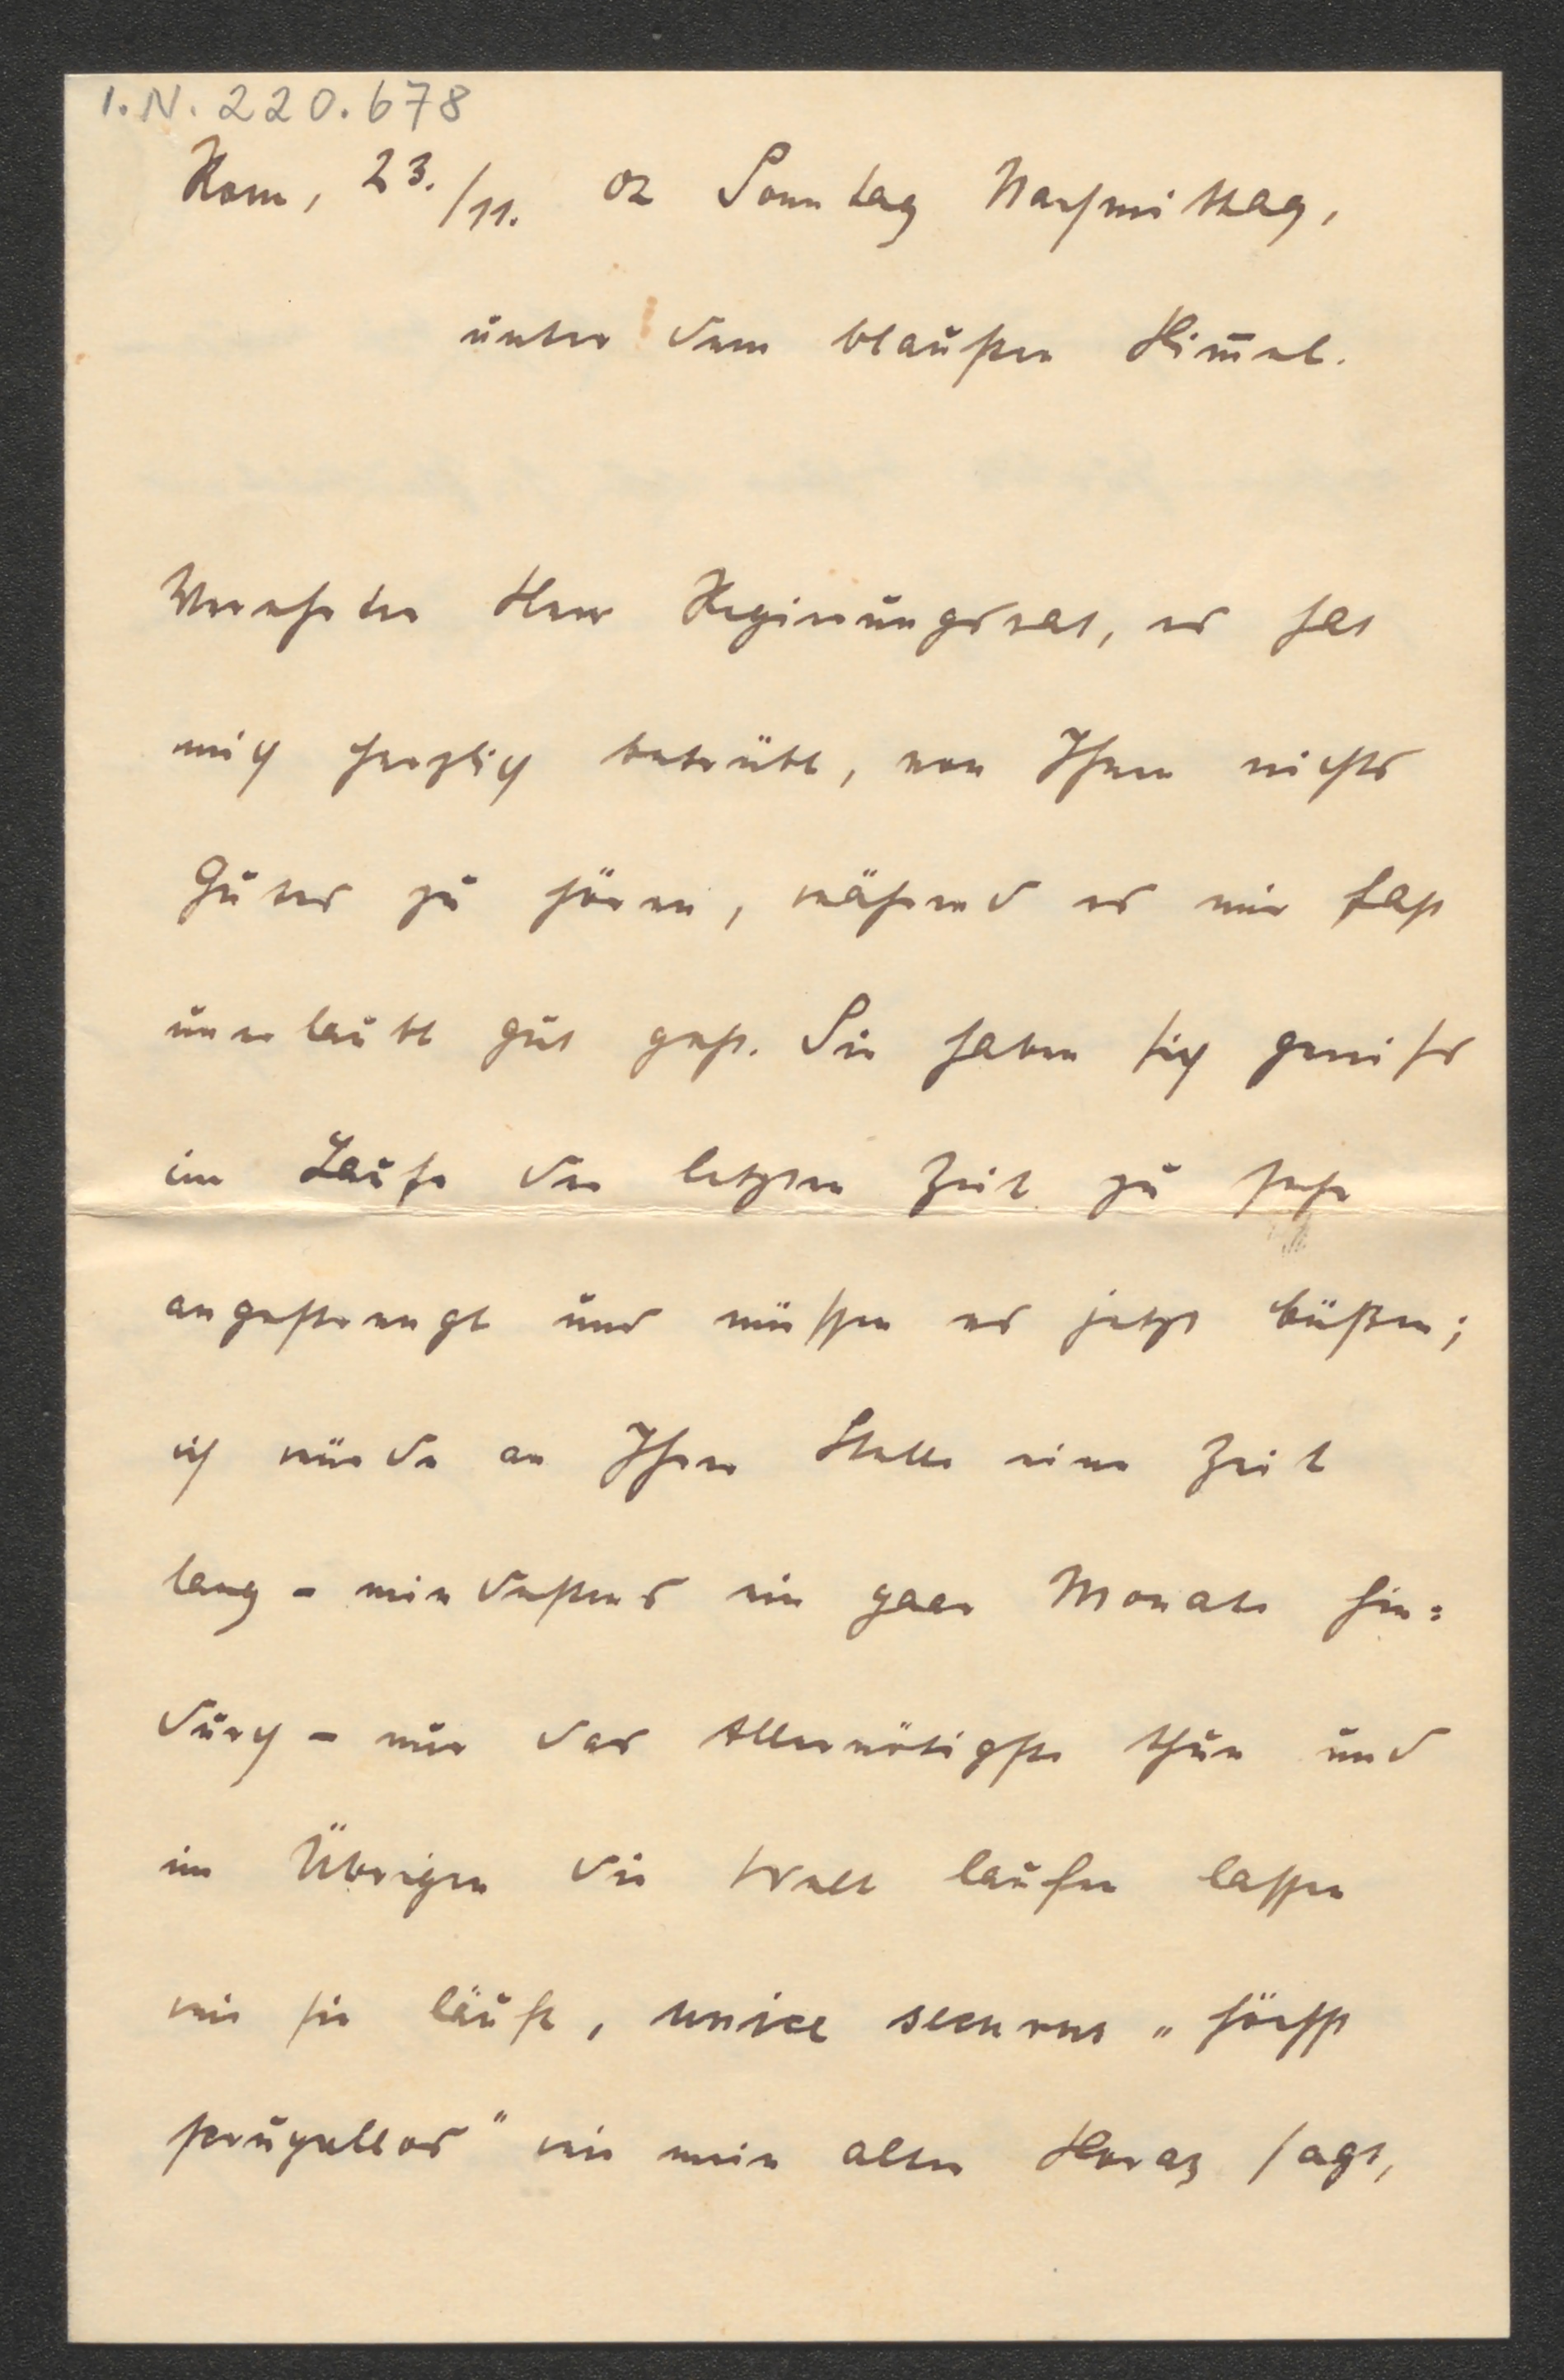 I.N. 220.678
Rom, 23./11. 02 Sonntag Nachmittag,
unter dem blausten Him̅el.
Verehrter Herr Regierungsrat, es hat
mich herzlich betrübt, von Ihnen nichts
Gutes zu hören, während es mir fast
unerlaubt gut geht. Sie haben sich gewiss
im Laufe der letzten Zeit zu sehr
angestrengt und müssen es jetzt büßen;
ich würde an Ihrer Stelle eine Zeit
lang – mindestens ein paar Monate hin=
durch – nur das Allernötigste thun und
im Übrigen die Welt laufen lassen
wie sie läuft, unice securus „höchst
skrupellos" wie mein alter Horaz sagt,